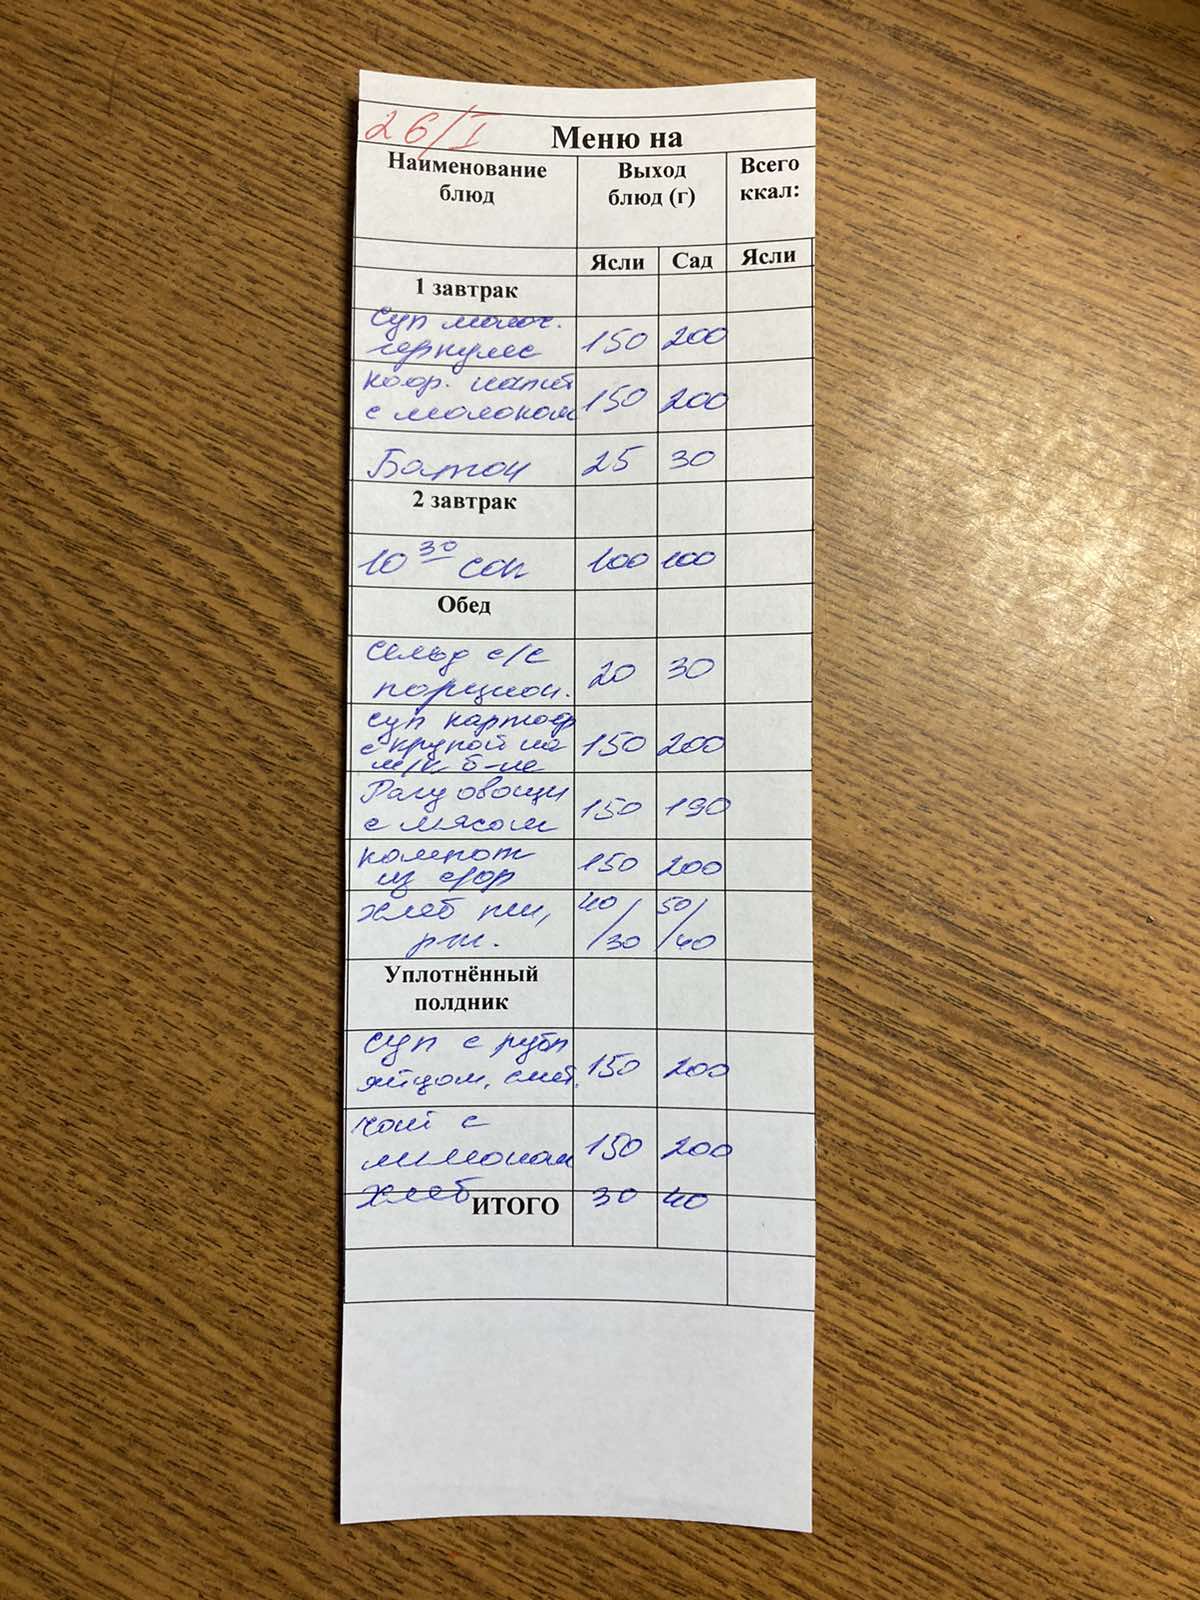 26/I Меню на
Наименование Выход Всего
блюд блюд (г) ккал:
Ясли Сад Ясли
1 завтрак
Суп молоч.
геркулес 150 200
Коф. напит
с молоком 150 200
Батон 25 30
2 завтрак
10 30 сок 100 100
Обед
Сельд с/с
порцион. 20 30
Суп картоф
с крупой на 150 200
м/к б-не
Рагу овощн
с мясом 150 190
компот
из с/фр 150 200
хлеб пш, 40/ 50/
рж. /30 /40
Уплотнённый
полдник
Суп с рыбн
яйцом, смет. 150 200
чай с
лимоном 150 200
хлеб 30 40
ИТОГО